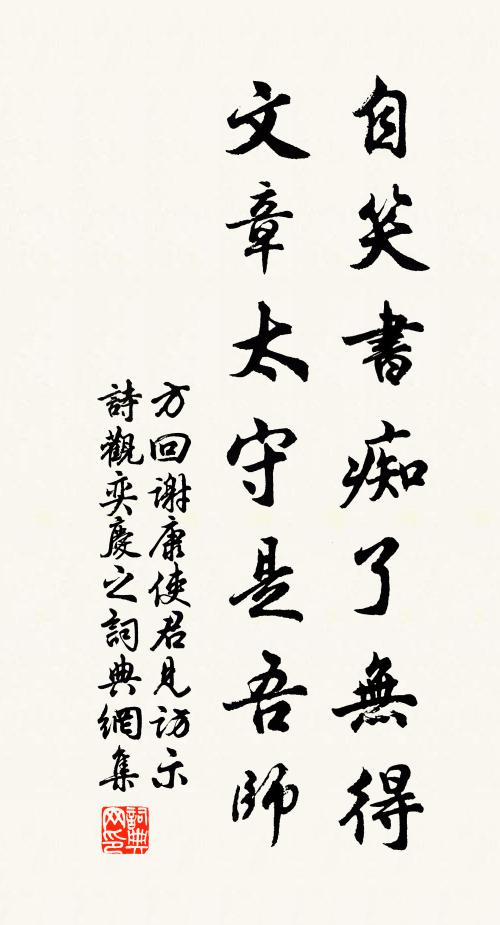 自笑書痴了無得
文章太守是吾師
方回謝康使君見訪示
詩觀奕慶之詞典網集
詞典网印